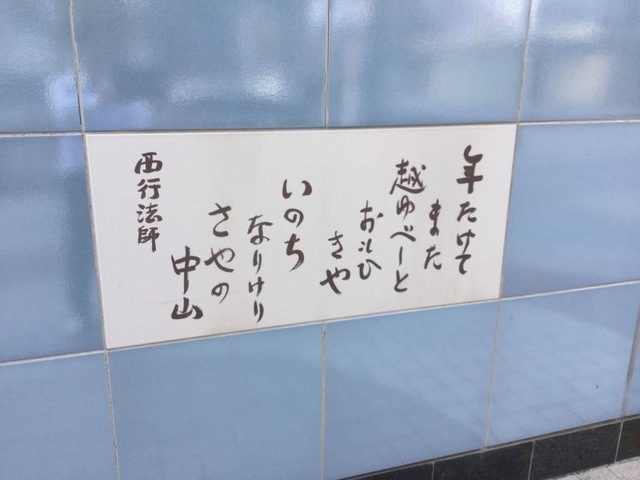 年たけて
また
越ゆべーと
おもひ
きや
いのち
なりけり
さやの
中山
西行法師